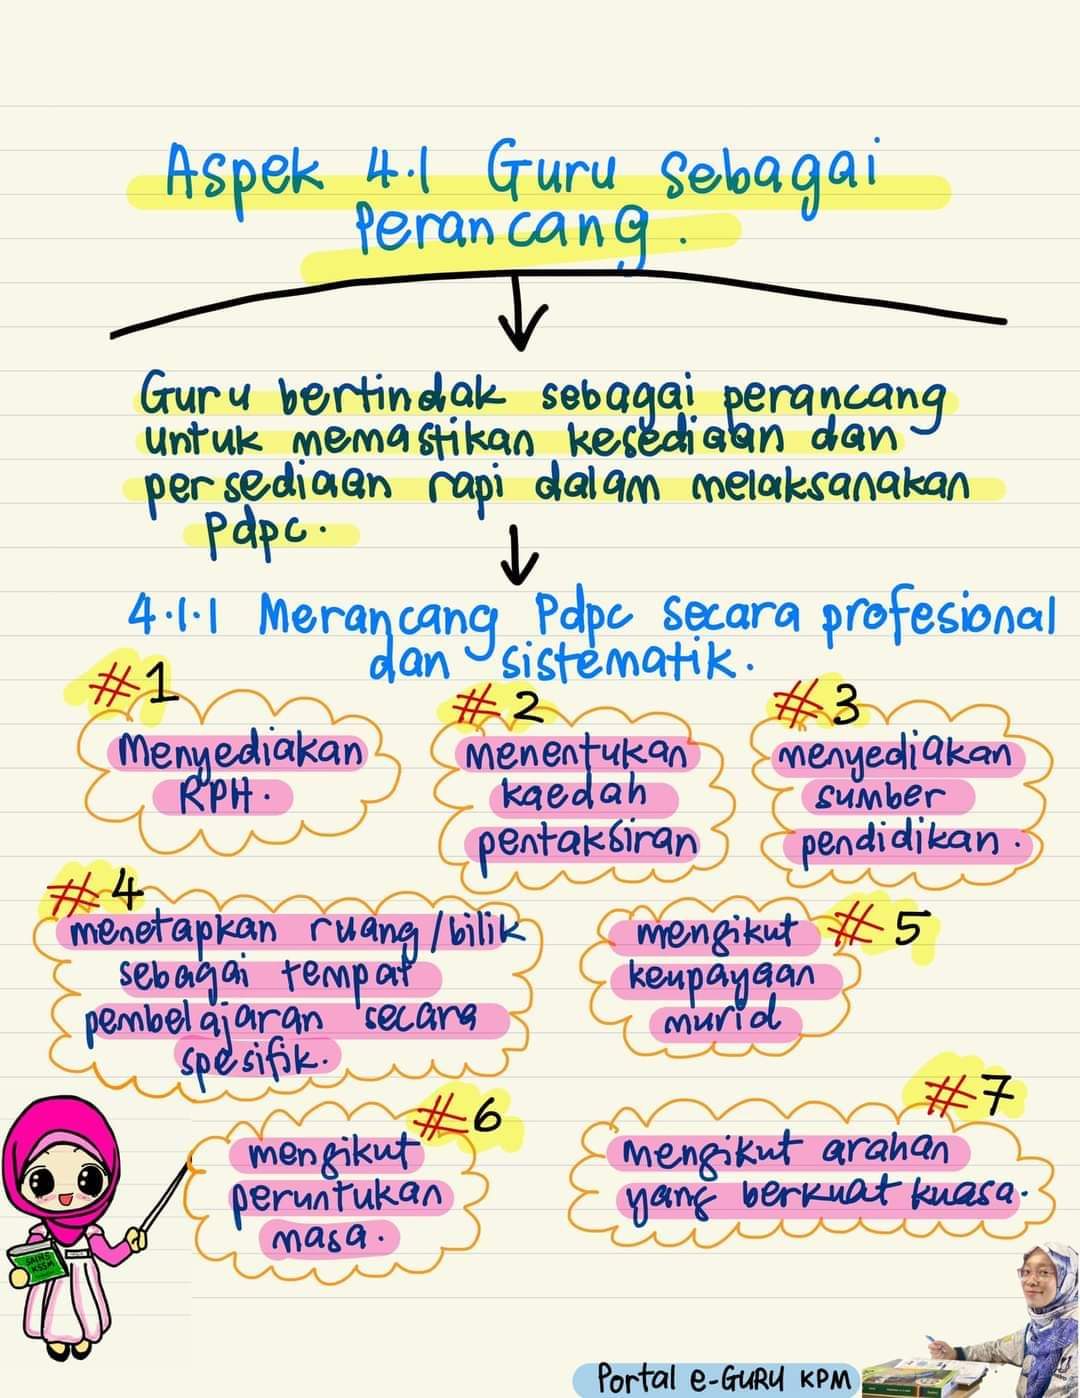 Aspek 4.1 Guru sebagai
Perancang.
Guru bertindak sebagai perancang
untuk memastikan kesediaan dan
persediaan rapi dalam melaksanakan
Pdpc.
4.1.1 Merancang Pdpc secara profesional
dan sistematik.
#1
Menyediakan
RPH.
#2
menentukan
kaedah
pentaksiran
#3
menyediakan
sumber
pendidikan.
#4
menetapkan ruang/bilik
sebagai tempat
pembelajaran secara
spesifik.
#5
mengikut
keupayaan
murid
#6
mengikut
peruntukan
masa.
#7
mengikut arahan
yang berkuat kuasa.
SAINS
KSSM
Portal e-GURU KPM